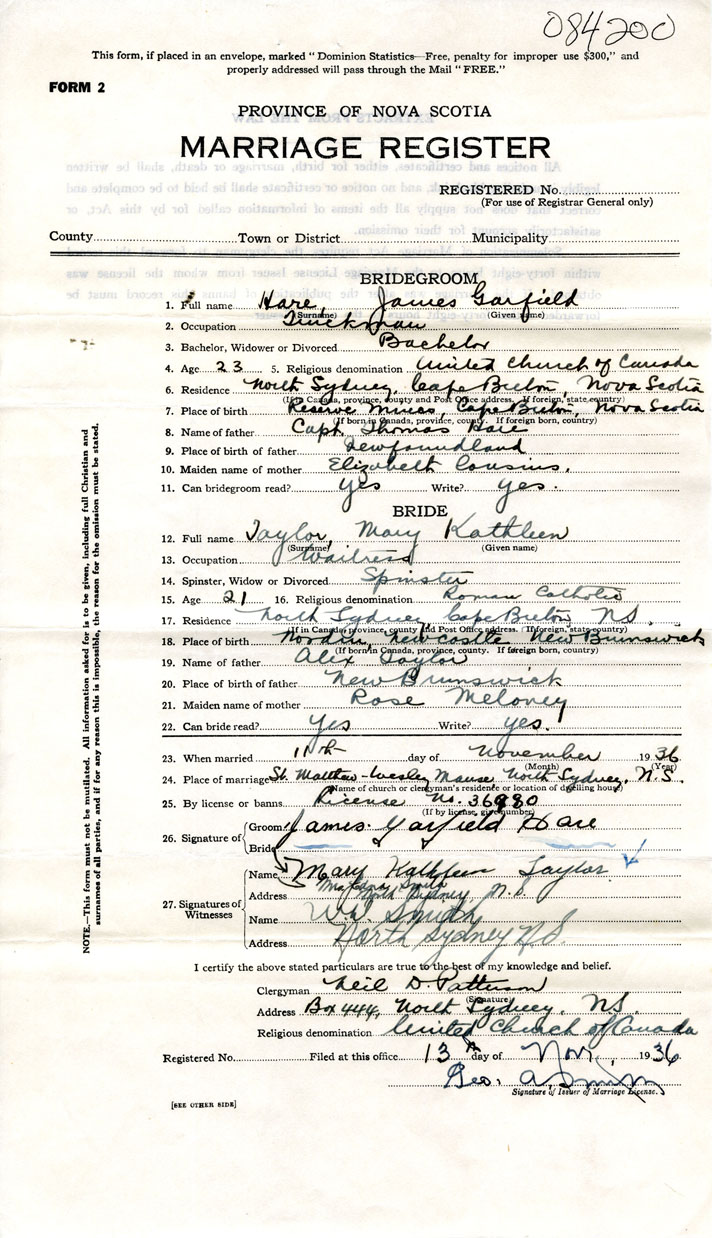 084200
This form, if placed in an envelope, marked "Dominion Statistics—Free, penalty for improper use $300," and
properly addressed will pass through the Mail "FREE."
FORM 2
PROVINCE OF NOVA SCOTIA
MARRIAGE REGISTER
REGISTERED No.
(For use of Registrar General only)
County Town or District Municipality
BRIDEGROOM
1. Full name Hare, James Garfield
(Surname) (Given name)
2. Occupation Truckman
3. Bachelor, Widower or Divorced Bachelor
4. Age 23 5. Religious denomination United Church of Canada
6. Residence North Sydney, Cape Breton, Nova Scotia
(If in Canada, province, county and Post Office address. If foreign, state, country)
7. Place of birth Reserve Mines, Cape Breton, Nova Scotia
(If born in Canada, province, county. If foreign born, country)
8. Name of father Capt. Thomas Hare
9. Place of birth of father Newfoundland
10. Maiden name of mother Elizabeth Cousins.
11. Can bridegroom read? yes Write? yes.
BRIDE
12. Full name Taylor, Mary Kathleen
(Surname) (Given name)
13. Occupation Waitress
14. Spinster, Widow or Divorced Spinster
15. Age 21 16. Religious denomination Roman Catholic
17. Residence North Sydney Cape Breton, N.S.
(If in Canada, province, county and Post Office address. If foreign, state, country)
18. Place of birth Nordin, Newcastle New Brunswick
(If born in Canada, province, county. If foreign born, country)
19. Name of father Alex Taylor
20. Place of birth of father New Brunswick
21. Maiden name of mother Rose Meloney
22. Can bride read? Yes Write? yes.
23. When married 11th day of November 1936
(Month) (Year)
24. Place of marriage St. Matthew-Wesley Manse North Sydney, N.S.
(Name of church or clergyman's residence or location of dwelling house)
25. By license or banns License No. 36980
(If by license, give number)
26. Signature of Groom James Garfield Hare
Bride
Name Mary Kathleen Taylor
27. Signatures of Witnesses
Address North Sydney N.S.
Name Wm Smith
Address North Sydney N.S.
I certify the above stated particulars are true to the best of my knowledge and belief.
Clergyman Neil D. Patterson
(Signature)
Address Box 444, North Sydney, NS
Religious denomination United Church of Canada
Registered No. Filed at this office 13th day of Nov., 1936
Geo. A. Smith
Signature of Issuer of Marriage License.
[SEE OTHER SIDE]
NOTE.—This form must not be mutilated. All information asked for is to be given, including full Christian and
surnames of all parties, and if for any reason this is impossible, the reason for the omission must be stated.